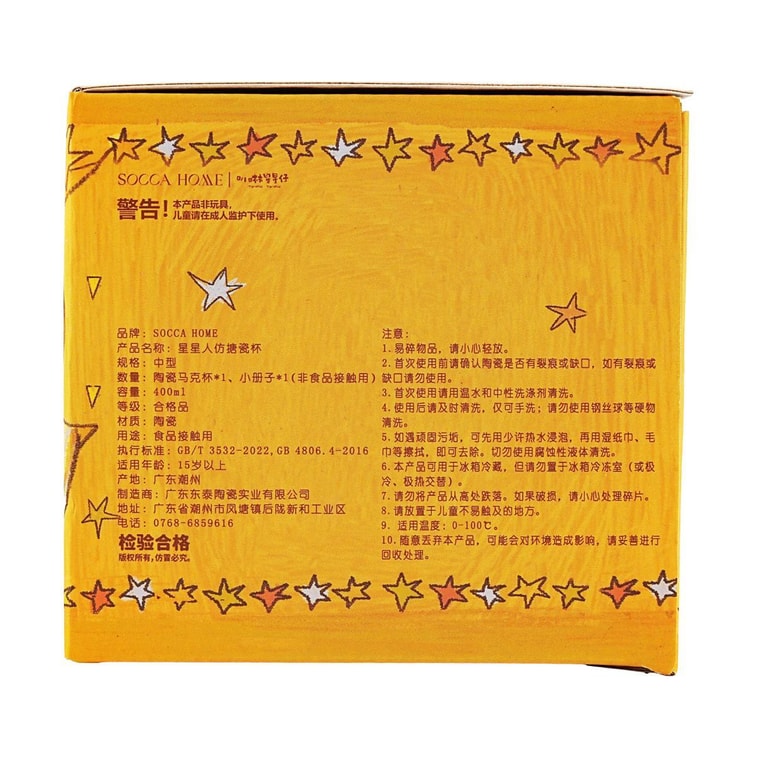 SOCCA HOME
警告！
本产品非玩具，
儿童请在成人监护下使用。
品牌：SOCCA HOME
产品名称：星星人仿搪瓷杯
规格：中型
数量：陶瓷马克杯*1、小册子*1(非食品接触用)
容量：400ml
等级：合格品
材质：陶瓷
用途：食品接触用
执行标准：GB/T 3532-2022,GB 4806.4-2016
适用年龄：15岁以上
产地：广东潮州
制造商：广东东泰陶瓷实业有限公司
地址：广东省潮州市凤塘镇后陇新和工业区
电话：0768-6859616
检验合格
版权所有，仿冒必究。
注意：
1.易碎物品，请小心轻放。
2.首次使用前请确认陶瓷是否有裂痕或缺口，如有裂痕或
缺口请勿使用。
3.首次使用请用温水和中性洗涤剂清洗。
4.使用后请及时清洗，仅可手洗；请勿使用钢丝球等硬物
清洗。
5.如遇顽固污垢，可先用少许热水浸泡，再用湿纸巾、毛
巾等擦拭，即可去除。切勿使用腐蚀性液体清洗。
6.本产品可用于冰箱冷藏，但请勿置于冰箱冷冻室（或极
冷、极热交替）。
7.请勿将产品从高处跌落。如果破损，请小心处理碎片。
8.请放置于儿童不易触及的地方。
9. 适用温度：0-100℃。
10.随意丢弃本产品，可能会对环境造成影响，请妥善进行
回收处理。